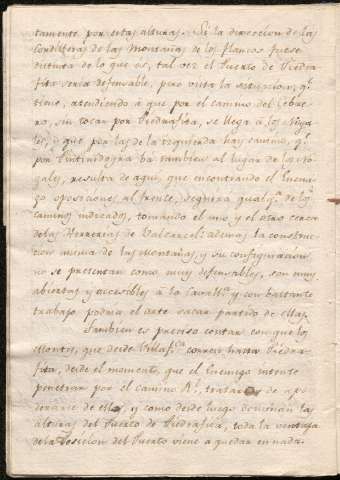 tamente por estas alturas. Si la direccion de las
Cordilleras de las Montañas de los flancos fuese
distinta de lo que és, tal vez el Puerto de Piedra
fita seria defensable, pero vista la situacion, q.e
tiene, atendiendo á que por el camino del Cebre
ro, sin tocar por Piedrafita, se llega á los Noga
les, y que por las de la izquierda hay camino, q.e
por Pintinidoyra ba tambien al lugar de los No
gales, resulta de aqui, que encontrando el Enemi
go oposiciones al frente, seguira qualq.a de los
caminos indicados, tomando el uno y el otro cerca
de las Herrerias de Valcarcel: ademas la construc
cion misma de las Montañas, y su configuracion
no se presentan como muy defensables, son muy
abiertas y accesibles á la Cavall.a y con bastante
trabajo podria el arte sacar partido de ellas.
Tambien es preciso contar con que los
Montes, que desde Villaf.ca corren hasta Piedra
fita, desde el momento, que el Enemigo intente
penetrar por el camino R.l tratará de apo
derarse de ellos, y como desde luego dominan las
alturas del Puerto de Piedrafita, toda la ventaja
de la Posicion del Puerto viene á quedar en nada.